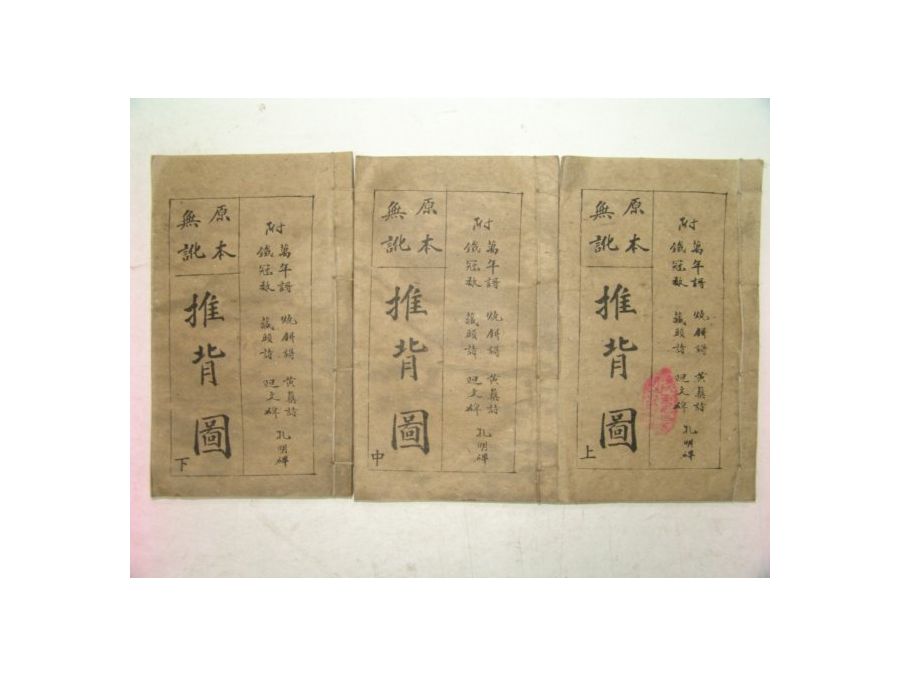 附
萬年謌 燒餅謌 黃蘗詩 孔明碑
鐵冠数 藏頭詩 廻文碑
原本
無訛
推背圖
上
附
萬年謌 燒餅謌 黃蘗詩 孔明碑
鐵冠数 藏頭詩 廻文碑
原本
無訛
推背圖
中
附
萬年謌 燒餅謌 黃蘗詩 孔明碑
鐵冠数 藏頭詩 廻文碑
原本
無訛
推背圖
下